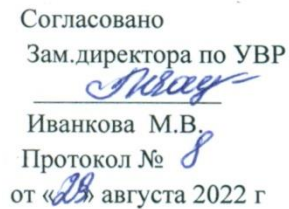 Согласовано
Зам.директора по УВР
Иванкова М.В.
Протокол № 8
от «29» августа 2022 г